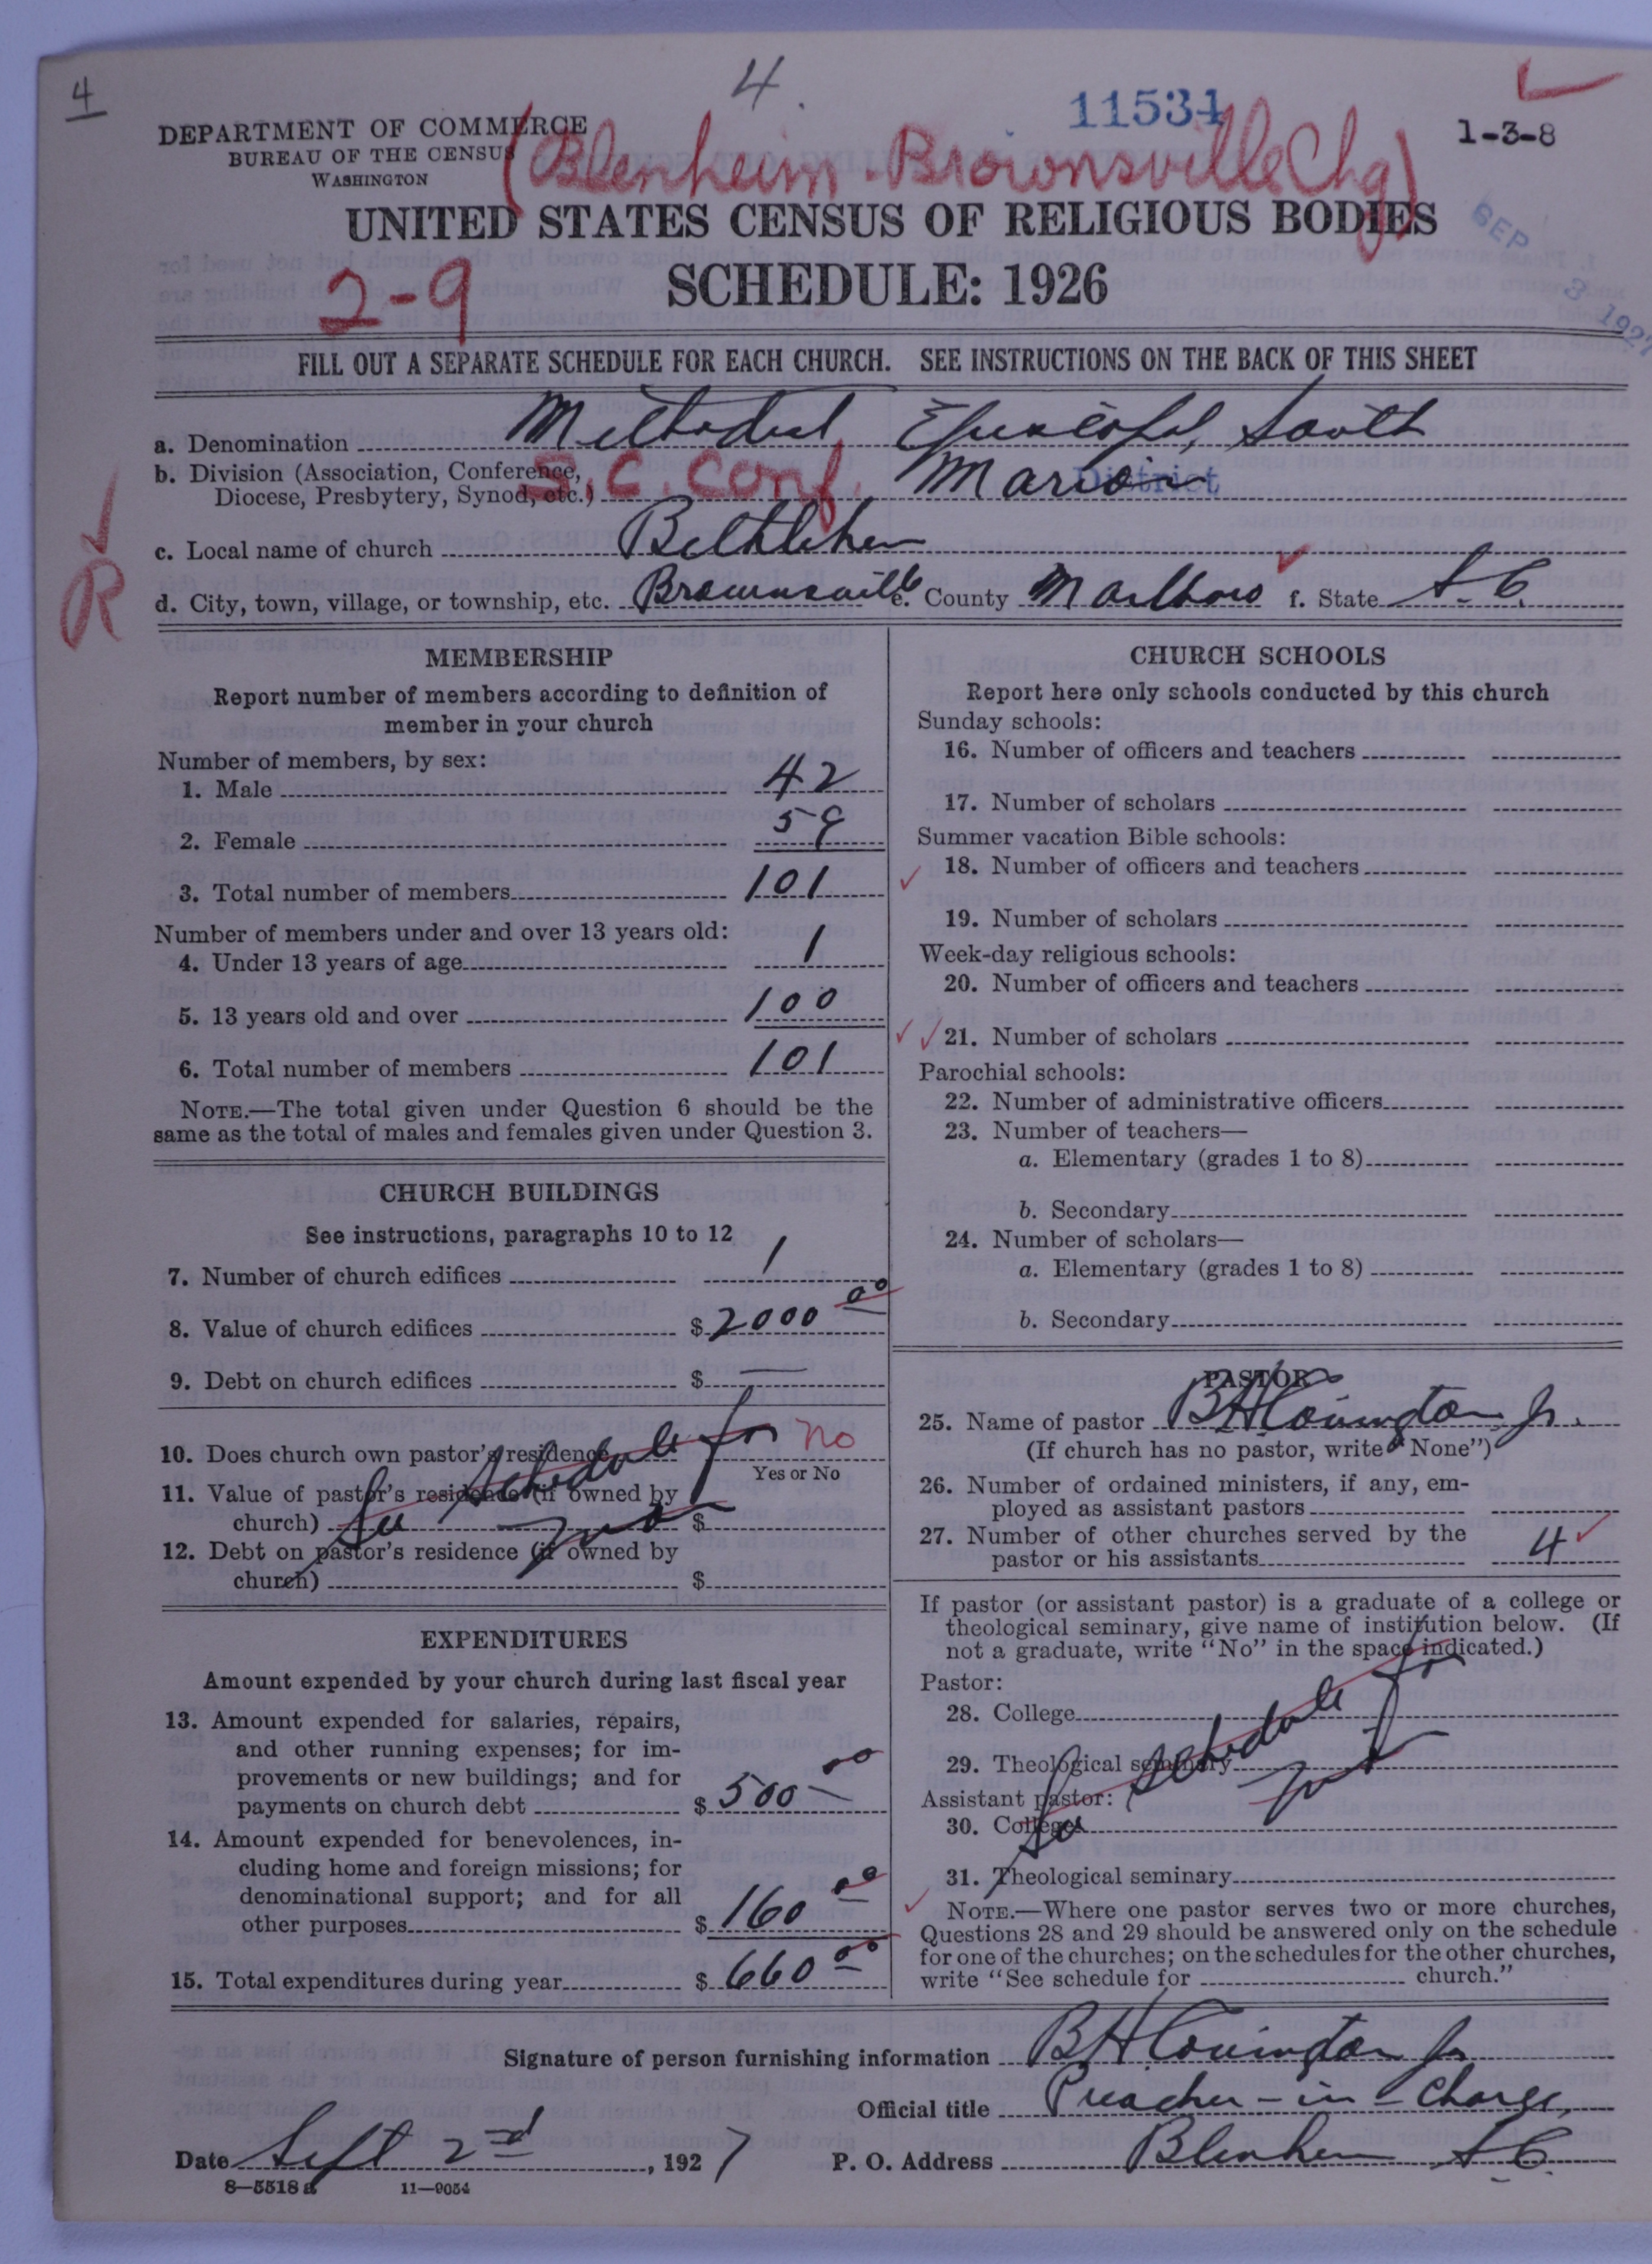 4
4.
11534
1-3-8
DEPARTMENT OF COMMERCE
BUREAU OF THE CENSUS
WASHINGTON
(Blenheim-Brownsville Chg)
UNITED STATES CENSUS OF RELIGIOUS BODIES
SEP 8 1927
2-9
SCHEDULE: 1926
FILL OUT A SEPARATE SCHEDULE FOR EACH CHURCH. SEE INSTRUCTIONS ON THE BACK OF THIS SHEET
a. Denomination Methodist Episcopal, South
b. Division (Association, Conference, S.C. Conf. Marion District
Diocese, Presbytery, Synod, etc.)
c. Local name of church Bethlehem
R
d. City, town, village, or township, etc. Brownsville e. County Marlboro f. State S.C.
MEMBERSHIP
Report number of members according to definition of
member in your church
Number of members, by sex:
1. Male 42
2. Female 59
3. Total number of members 101
Number of members under and over 13 years old:
4. Under 13 years of age 1
5. 13 years old and over 100
6. Total number of members 101
NOTE.—The total given under Question 6 should be the
same as the total of males and females given under Question 3.
CHURCH BUILDINGS
See instructions, paragraphs 10 to 12
7. Number of church edifices 1
8. Value of church edifices $2000 00
9. Debt on church edifices $ —
10. Does church own pastor's residence no
Yes or No
11. Value of pastor's residence (if owned by
church) $
See schedule for
12. Debt on pastor's residence (if owned by
church) $
EXPENDITURES
Amount expended by your church during last fiscal year
13. Amount expended for salaries, repairs,
and other running expenses; for im-
provements or new buildings; and for
payments on church debt $500 00
14. Amount expended for benevolences, in-
cluding home and foreign missions; for
denominational support; and for all
other purposes $160 00
15. Total expenditures during year $660 00
CHURCH SCHOOLS
Report here only schools conducted by this church
Sunday schools:
16. Number of officers and teachers
17. Number of scholars
Summer vacation Bible schools:
18. Number of officers and teachers
19. Number of scholars
Week-day religious schools:
20. Number of officers and teachers
21. Number of scholars
Parochial schools:
22. Number of administrative officers
23. Number of teachers—
a. Elementary (grades 1 to 8)
b. Secondary
24. Number of scholars—
a. Elementary (grades 1 to 8)
b. Secondary
PASTOR
25. Name of pastor BH Covington Jr.
(If church has no pastor, write "None")
26. Number of ordained ministers, if any, em-
ployed as assistant pastors
27. Number of other churches served by the
pastor or his assistants 4
If pastor (or assistant pastor) is a graduate of a college or
theological seminary, give name of institution below. (If
not a graduate, write "No" in the space indicated.)
Pastor:
28. College
29. Theological seminary
See schedule for
Assistant pastor:
30. College
31. Theological seminary
NOTE.—Where one pastor serves two or more churches,
Questions 28 and 29 should be answered only on the schedule
for one of the churches; on the schedules for the other churches,
write "See schedule for church."
Signature of person furnishing information BH Covington Jr
Official title Preacher-in-Charge,
Date Sept 2nd, 1927 P. O. Address Blenheim S.C.
8—5518 a 11—9054